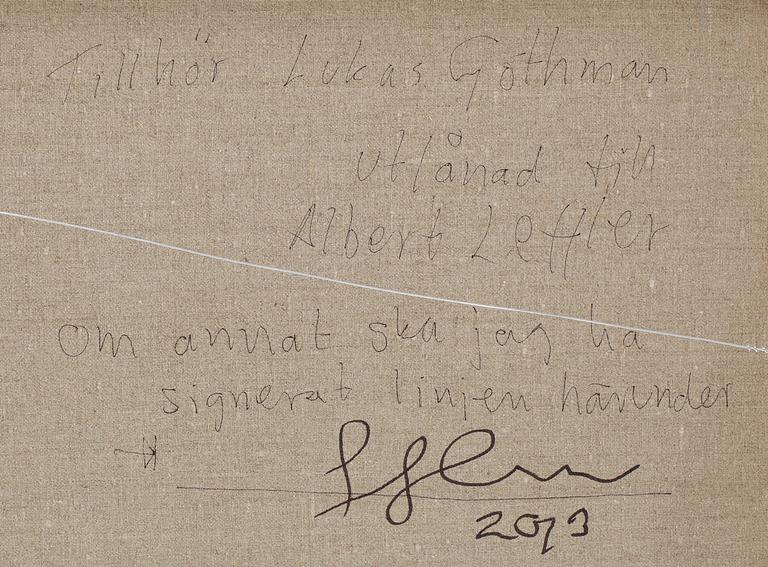 Tillhör Lukas Göthman
utlånad till
Albert Leffler
om annat ska jag ha
signerat linjen härunder
2013